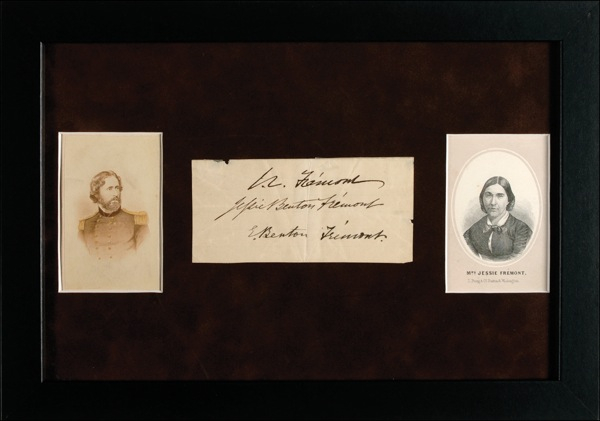 J. C. Frémont
Jessie Benton Frémont
E. Benton Frémont.
MRS JESSIE FREMONT.